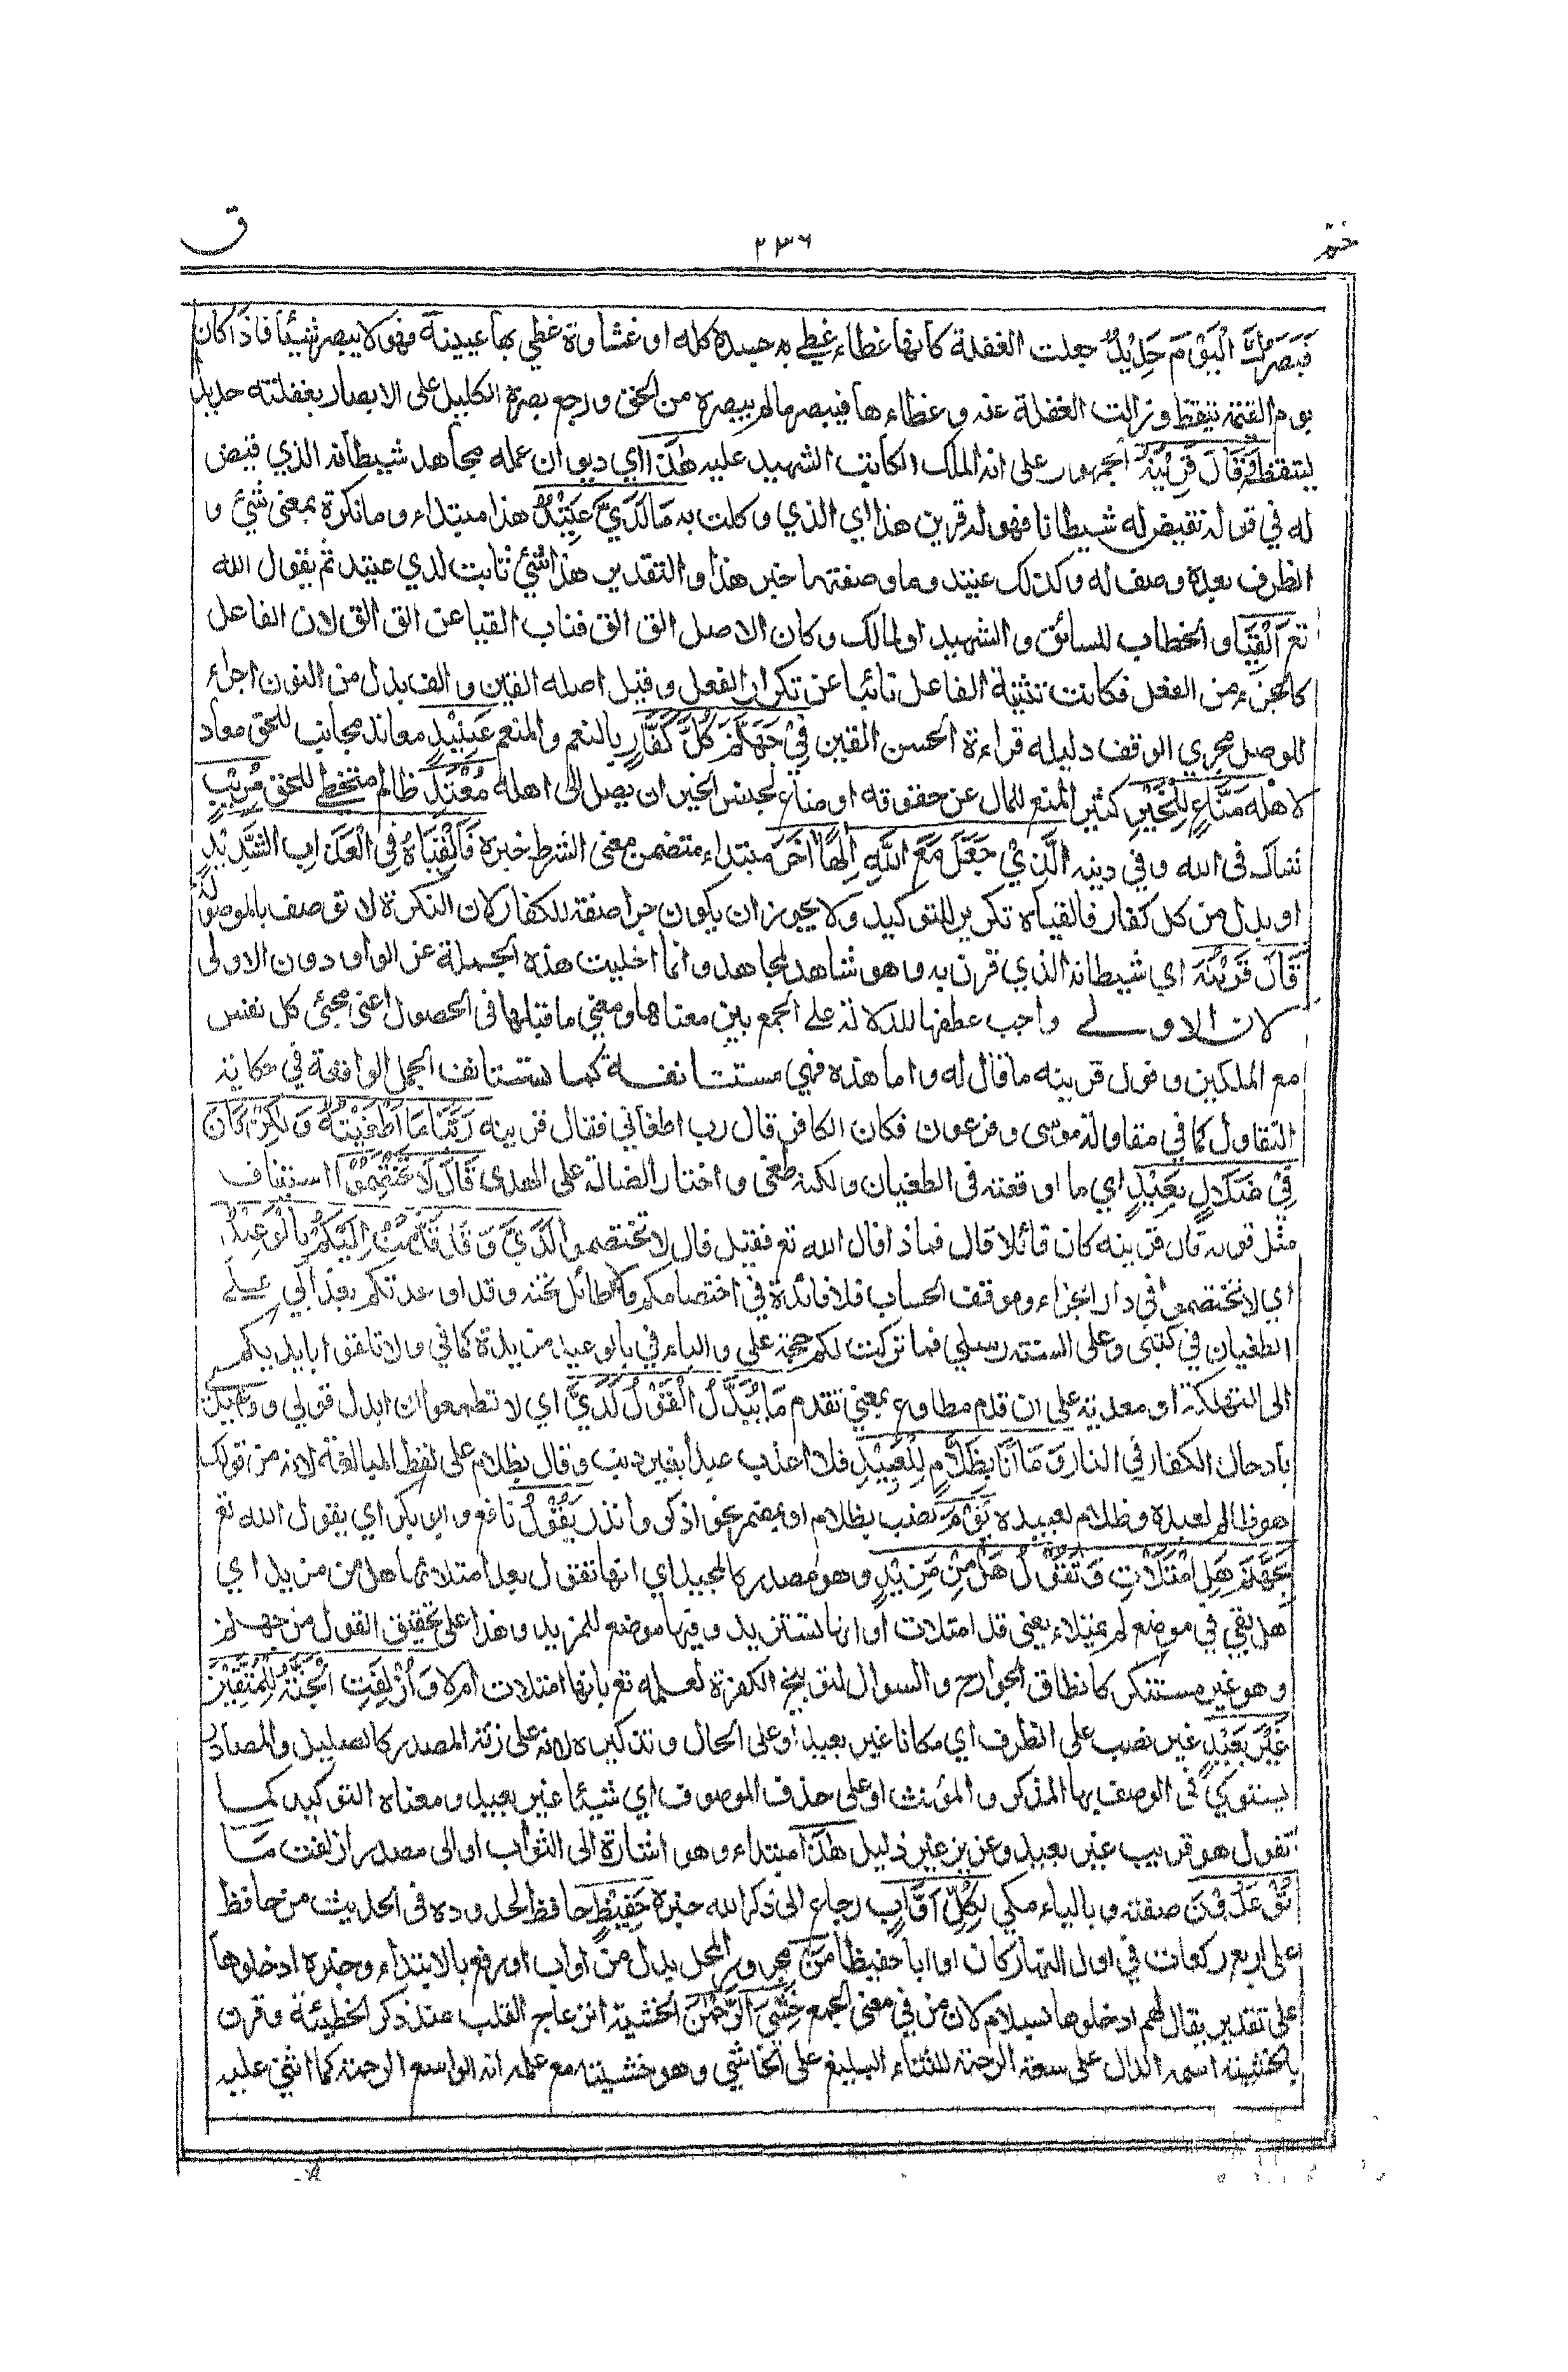 حٰم ٢٣٦ ق
فَبَصَرُكَ الْيَوْمَ حَدِيْدٌ جعلت الغفلة كانها غطاء غطي به جسده كله او غشاوة غطي بها عينيه فهو لا يبصر شيئا فاذا كان
يوم القيمة تيقظ وزالت الغفلة عنه وغطاءها فيبصر ما لم يبصره من الحق ورجع بصره الكليل على الابصار بغفلته حديدا
لتيقظه وَقَالَ قَرِيْنُهٗ الجمهور على انه الملك الكاتب الشهيد عليه هٰذَا اي ديوان عمله مجاهد شيطانه الذي قيض
له في قوله نقيض له شيطانا فهو له قرين هذا اي الذي وكلت به مَا لَدَيَّ عَتِيْدٌ هذا مبتداء وما نكرة بمعنى شئ و
الظرف بعده وصف له وكذلك عتيد وما وصفتها خبر هذا والتقدير هذا شئ ثابت لدي عتيد ثم يقول الله
تع اَلْقِيَا والخطاب للسائق والشهيد او لمالك وكان الاصل الق الق فناب القيا عن الق الق لان الفاعل
كالجزء من الفعل فكانت تثنية الفاعل نائبا عن تكرار الفعل وقيل اصله القين والالف بدل من النون اجراء
للوصل مجرى الوقف دليله قراءة الحسن القين فِيْ جَهَنَّمَ كُلَّ كَفَّارٍ بالنعم والمنعم عَنِيْدٍ معاند مجانب للحق معاد
لاهله مَنَّاعٍ لِلْخَيْرِ كثير المنع للمال عن حقوقه او مناع لجنس الخير ان يصل الى اهله مُعْتَدٍ ظالم متخط للحق مُرِيْبٍ
شاك فى الله وفي دينه الَّذِيْ جَعَلَ مَعَ اللّٰهِ اِلٰهًا اٰخَرَ مبتداء متضمن معنى الشرط خبره فَاَلْقِيَاهُ فِى الْعَذَابِ الشَّدِيْدِ
او بدل من كل كفار فالقياه تكرير للتوكيد ولا يجوز ان يكون جرا صفة للكفار لان النكرة لا توصف بالموصولة
قَالَ قَرِيْنُهٗ اي شيطانه الذي قرن به وهو شاهد لمجاهد وانما اخليت هذه الجملة عن الواو دون الاولى
لان الاولى واجب عطفها للدلالة على الجمع بين معناها ومعنى ما قبلها فى الحصول اعنى مجئ كل نفس
مع الملكين وقول قرينه ما قال له واما هذه فهي مستانفة كما تستانف الجمل الواقعة في حكاية
التقاول كما في مقاولة موسى وفرعون فكان الكافر قال رب اطغاني فقال قرينه رَبَّنَا مَا اَطْغَيْتُهٗ وَلٰكِنْ كَانَ
فِيْ ضَلَالٍ بَعِيْدٍ اي ما اوقعته فى الطغيان ولكنه طغى واختار الضلالة على الهدى قَالَ لَا تَخْتَصِمُوْا استيناف
مثل قوله قال قرينه كان قائلا قال فماذا قال الله تع فقيل قال لا تختصموا لَدَيَّ وَقَدْ قَدَّمْتُ اِلَيْكُمْ بِالْوَعِيْدِ
اي لا تختصموا في دار الجزاء وموقف الحساب فلا فائدة في اختصامكم ولا طائل تحته وقد اوعدتكم بعذابي على
الطغيان في كتبي وعلى السنة رسلي فما تركت لكم حجة علي والباء في بالوعيد مزيدة كما في ولا تلقوا بايديكم
الى التهلكة او معدية على ان قدم مطاوع بمعنى تقدم مَا يُبَدَّلُ الْقَوْلُ لَدَيَّ اي لا تطمعوا ان ابدل قولي ووعيدي
بادخال الكفار في النار وَمَا اَنَا بِظَلَّامٍ لِلْعَبِيْدِ فلا اعذب عبدا بغير ذنب وقال بظلام على لفظ المبالغة لانه من قولك
هو ظالم لعبده وظلام لعبيده يَوْمَ نصب بظلام او بمضمر نحو اذكر وانذر يَقُوْلُ نافع وابو بكر اي يقول الله تع
لِجَهَنَّمَ هَلِ امْتَلَأْتِ وَتَقُوْلُ هَلْ مِنْ مَزِيْدٍ وهو مصدر كالمجيد اي انها تقول بعد امتلائها هل من مزيد اي
هل بقي في موضع لم يمتلاء يعني قد امتلات او انها تستزيد وفيها موضع للمزيد وهذا على تحقيق القول من جهنم
وهو غير مستنكر كانطاق الجوارح والسوال لتوبيخ الكفرة لعلمه تع بانها امتلات ام لا وَاُزْلِفَتِ الْجَنَّةُ لِلْمُتَّقِيْنَ
غَيْرَ بَعِيْدٍ غير نصب على الظرف اي مكانا غير بعيد او على الحال وتذكيره لانه على زنة المصدر كالصليل والمصادر
يستوي فى الوصف بها المذكر والمؤنث او على حذف الموصوف اي شيئا غير بعيد ومعناه التوكيد كما
تقول هو قريب غير بعيد وعزيز غير ذليل هٰذَا مبتداء وهو اشارة الى الثواب او الى مصدر ازلفت مَا
تُوْعَدُوْنَ صفته وبالياء مكي لِكُلِّ اَوَّابٍ رجاع الى ذكر الله خبره حَفِيْظٍ حافظ لحدوده فى الحديث من حافظ
على اربع ركعات في اول النهار كان اوابا حفيظا مَنْ مجرور المحل بدل من اواب او رفع بالابتداء وخبره ادخلوها
على تقدير يقال لهم ادخلوها بسلام لان من في معنى الجمع خَشِيَ الرَّحْمٰنَ الخشية انزعاج القلب عند ذكر الخطيئة وقرن
بالخشية اسمه الدال على سعة الرحمة للثناء البليغ على الخاشي وهو خشيته مع علمه انه الواسع الرحمة كما اثنى عليه